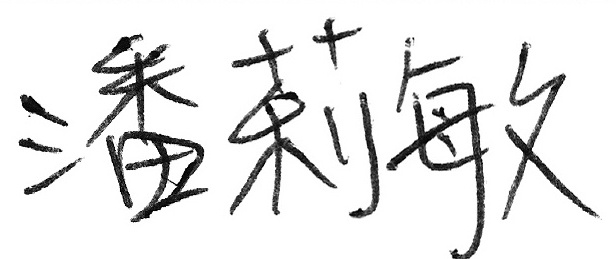 潘莉敏